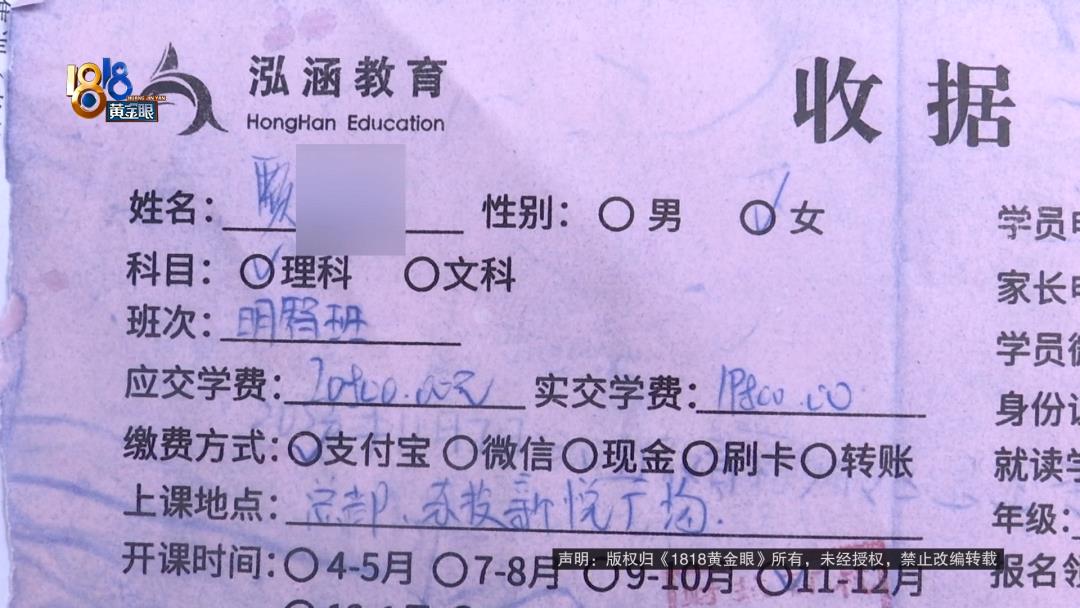 1818
HUANG JIN YAN
黄金眼
泓涵教育
HongHan Education
收据
姓名：顾
性别： 男 女
学员电
科目： 理科 文科
家长电
班次：明德班
学员微
应交学费： 实交学费：19800.00
身份证
缴费方式： 支付宝 微信 现金 刷卡 转账
就读学
上课地点：总部
年级：
开课时间： 4-5月 7-8月 9-10月 11-12月
报名领
声明：版权归《1818黄金眼》所有，未经授权，禁止改编转载